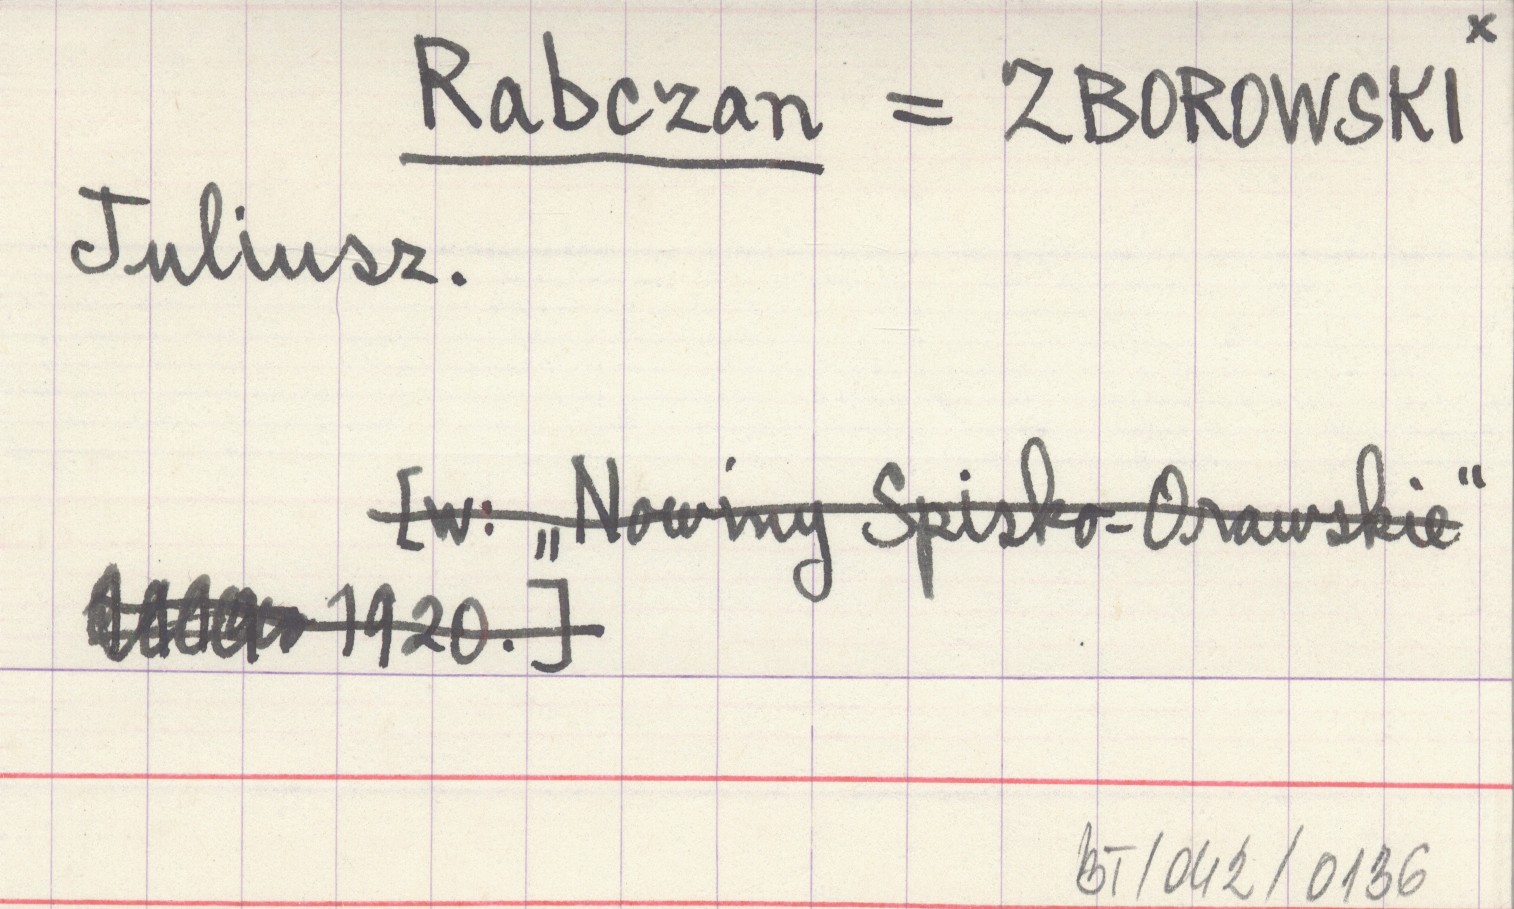 x
Rabczan = ZBOROWSKI
Juliusz.
[w: „Nowiny Spisko-Orawskie"
1920.]
BT/042/0136